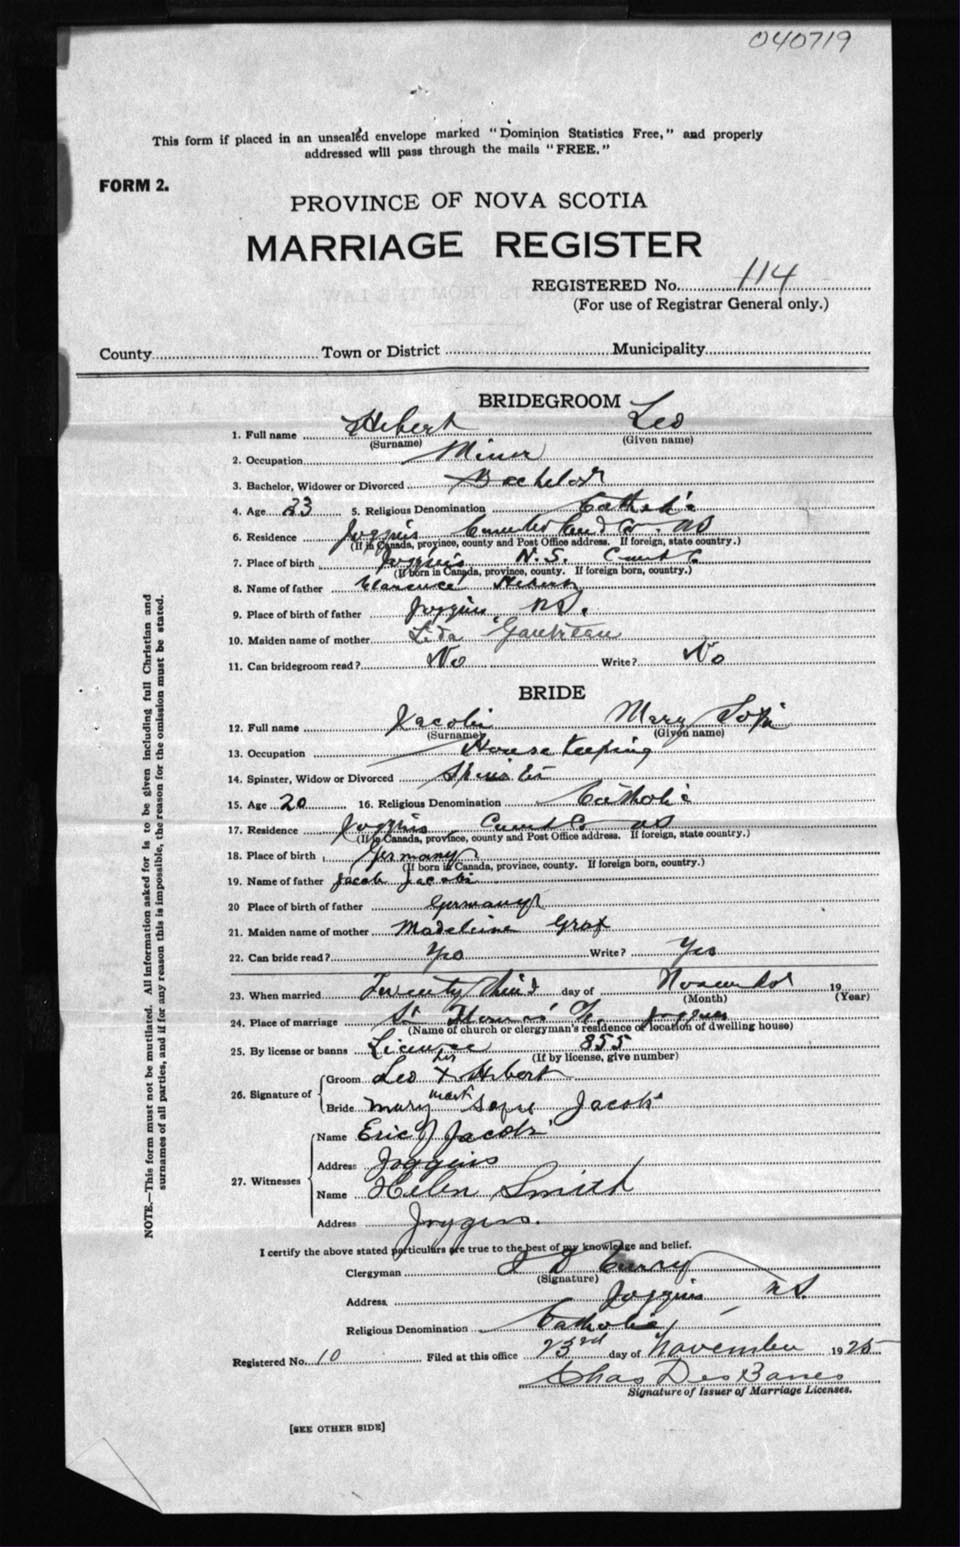 040719
This form if placed in an unsealed envelope marked "Dominion Statistics Free," and properly
addressed will pass through the mails "FREE."
FORM 2.
PROVINCE OF NOVA SCOTIA
MARRIAGE REGISTER
REGISTERED No. 114
(For use of Registrar General only.)
County Town or District Municipality
BRIDEGROOM
1. Full name Hebert Leo
(Surname) (Given name)
2. Occupation Miner
3. Bachelor, Widower or Divorced Bachelor
4. Age 23 5. Religious Denomination Catholic
6. Residence Joggins Cumberland Co. NS
(If in Canada, province, county and Post Office address. If foreign, state country.)
7. Place of birth Joggins N.S. Cumb C
(If born in Canada, province, county. If foreign born, country.)
8. Name of father Clarence Hebert
9. Place of birth of father Joggins, NS.
10. Maiden name of mother Lida
11. Can bridegroom read? No Write? No
BRIDE
12. Full name Jacobi Mary
(Surname) (Given name)
13. Occupation House Keeping
14. Spinster, Widow or Divorced Spinster
15. Age 20 16. Religious Denomination Catholic
17. Residence Joggins Cumb Co NS
(If in Canada, province, county and Post Office address. If foreign, state country.)
18. Place of birth Germany
(If born in Canada, province, county. If foreign born, country.)
19. Name of father Jacob Jacobi
20 Place of birth of father Germany
21. Maiden name of mother Madeleine Graf
22. Can bride read? Yes Write? Yes
23. When married Twenty third day of November 19
(Month) (Year)
24. Place of marriage St Thomas' Joggins
(Name of church or clergyman's residence or location of dwelling house)
25. By license or banns License 855
(If by license, give number)
26. Signature of
Groom Leo his x mark Hebert
Bride Mary Jacobi
27. Witnesses
Name Eric J Jacobi
Address Joggins
Name Helen Smith
Address Joggins.
I certify the above stated particulars are true to the best of my knowledge and belief.
Clergyman Curry
(Signature)
Address Joggins NS.
Religious Denomination Catholic
Registered No. 10 Filed at this office 23rd day of November 1925
Chas Des Barres
Signature of Issuer of Marriage Licenses.
[SEE OTHER SIDE]
NOTE.—This form must not be mutilated. All information asked for is to be given including full Christian and
surnames of all parties, and if for any reason this is impossible, the reason for the omission must be stated.